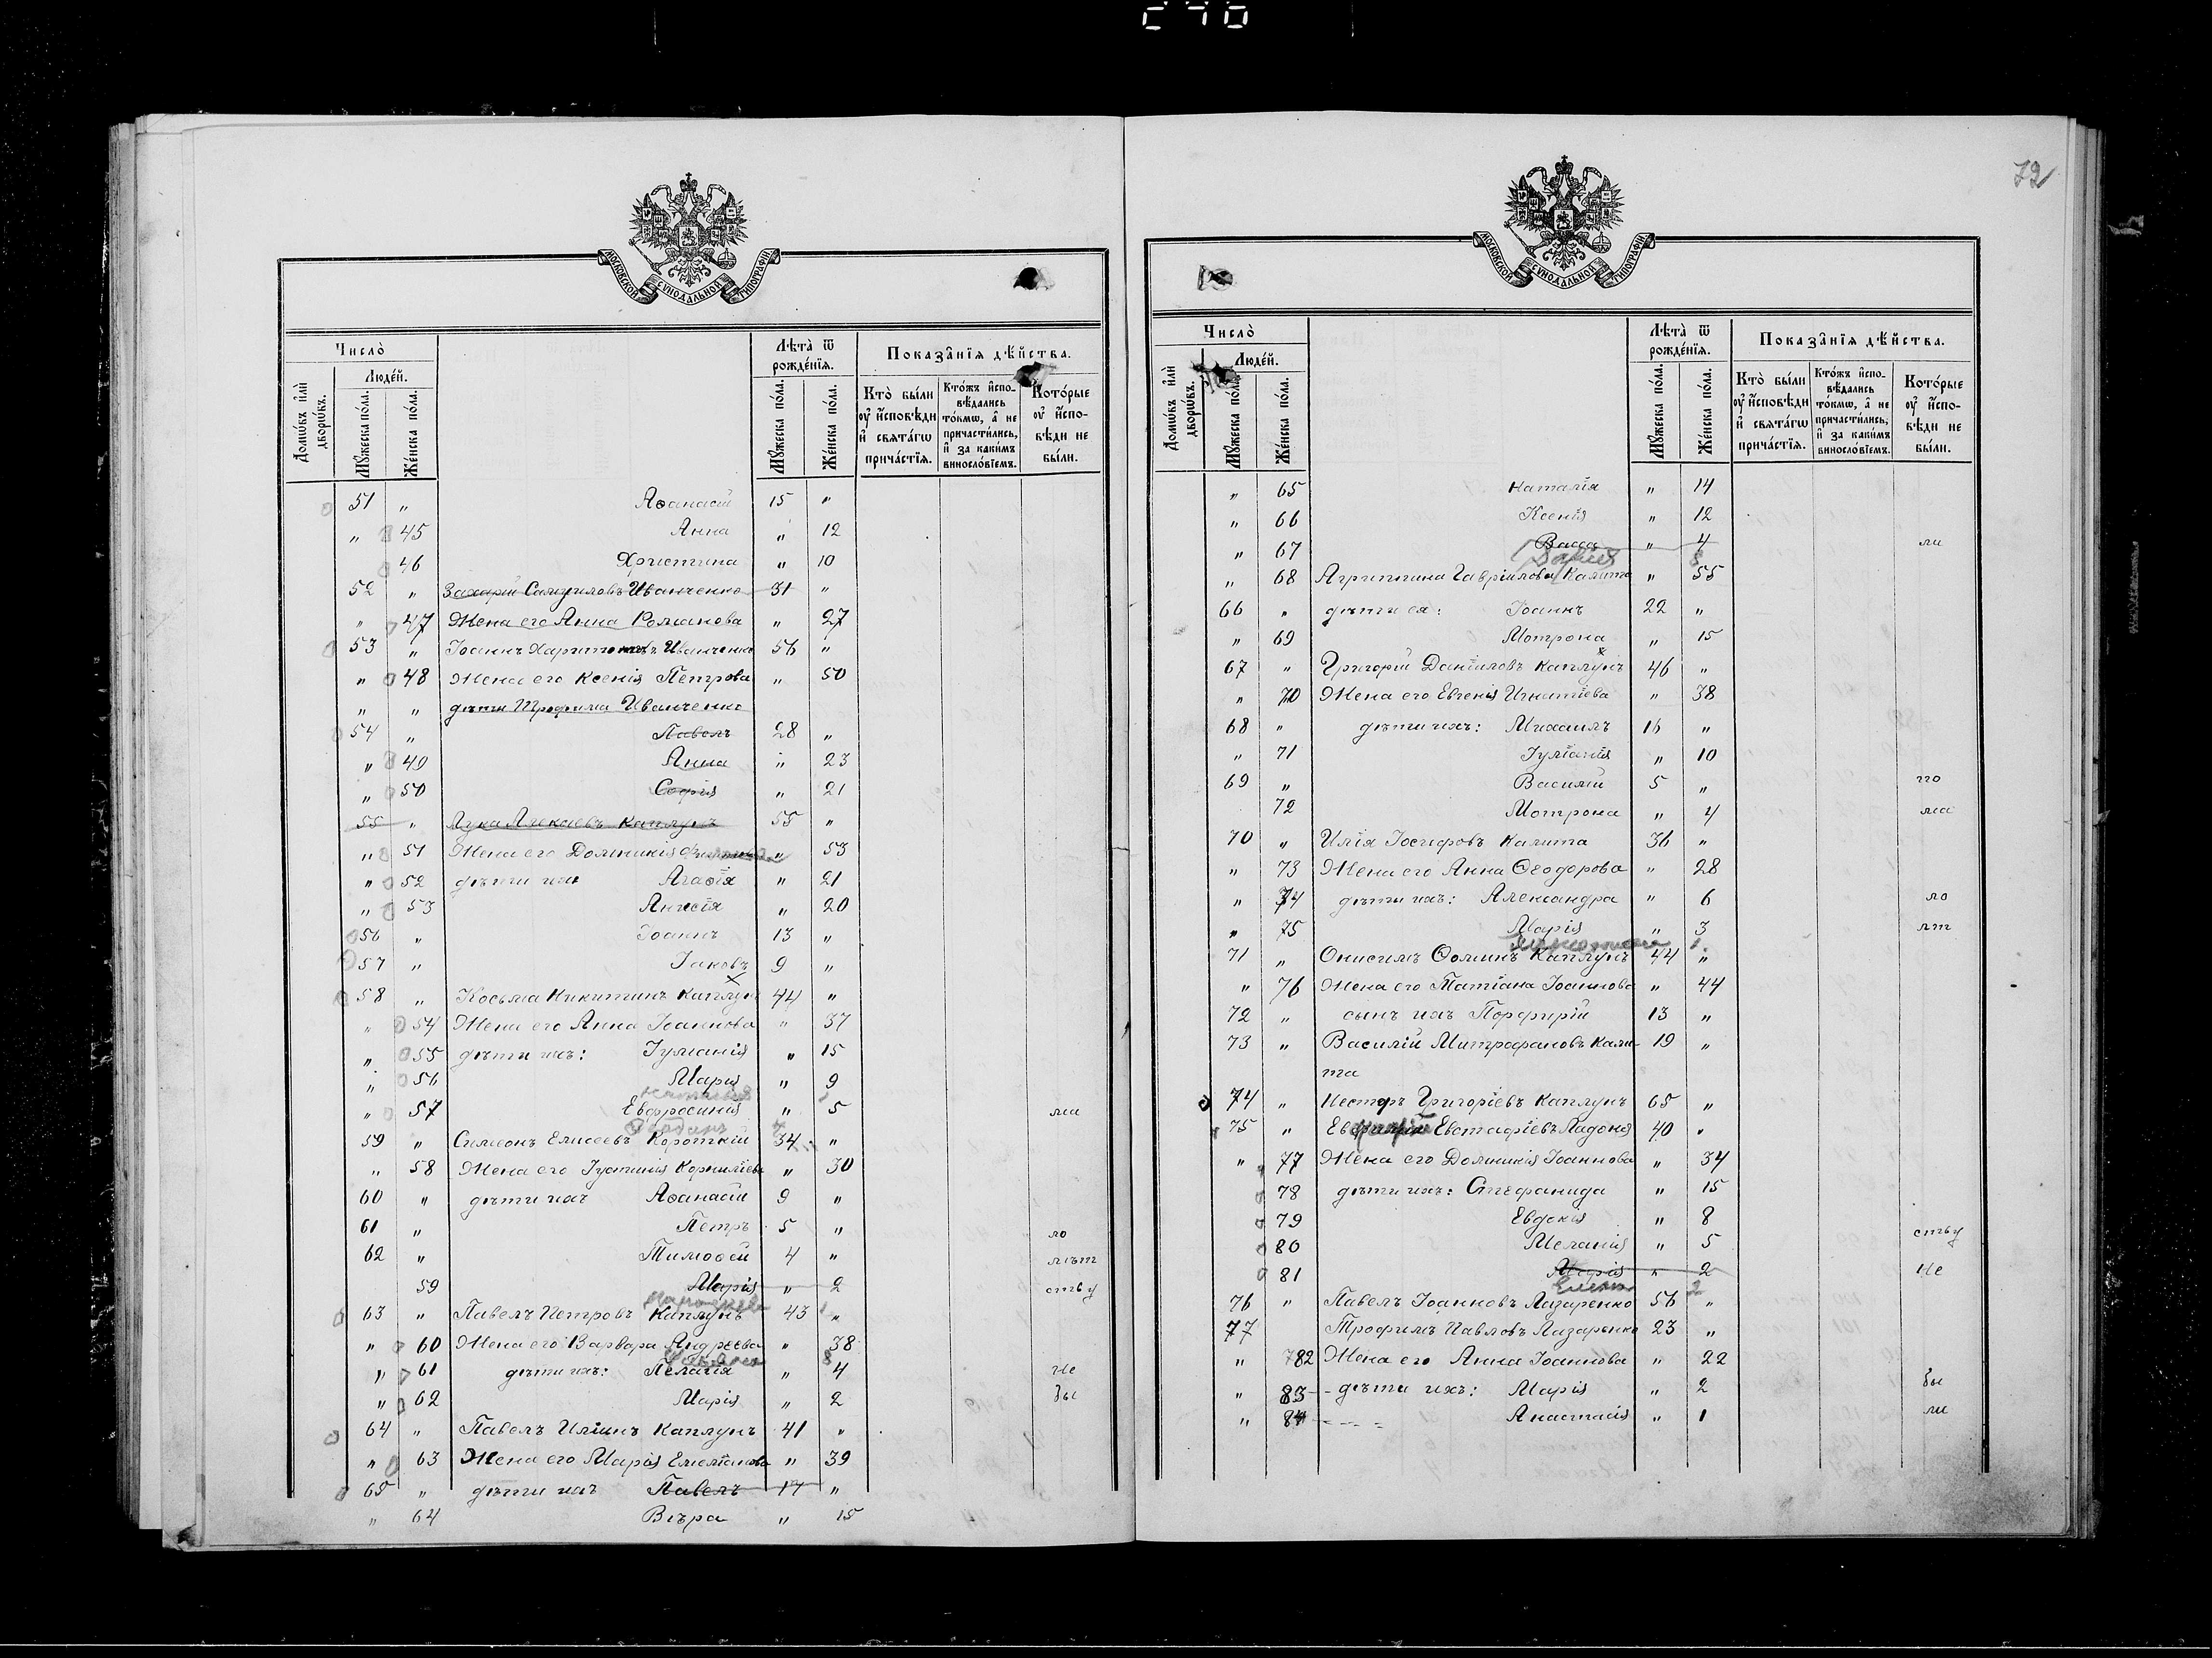 72
МОСКОВСКОЙ СѴНОДАЛЬНОЙ ТИПОГРАФІИ
Число̀
Лѣта̀ ѿ рожде́нїѧ.
Показа̑нїѧ дѣ́йства.
Домѡ́въ и҆лѝ дворѡ́въ.
Люде́й.
Мꙋ́жеска по́ла.
Же́нска по́ла.
Мꙋ́жеска по́ла.
Же́нска по́ла.
Кто̀ бы́ли ᲂу҆ и҆́сповѣди и҆ свѧта́гѡ причáстїѧ.
Кто́жъ и҆спо-вѣ́дались то́кмѡ, а҆ не причасти́лись, и҆ за каки́мъ винослóвїемъ.
Кото́рые ᲂу҆ и҆́спо-вѣди не бы́ли.
51 " Аѳанасій 15 "
" 45 Анна " 12
46 Христина " 10
52 " Захарій Самуиловъ Иванченко 31 "
" 47 Жена его Анна Романова " 27
53 " Іоаннъ Харитоновъ Иванченко 56 "
" 48 Жена его Ксенія Петрова " 50
" " дѣти Трофима Иванченко
54 " Павелъ 28 "
" 49 Анна " 23
" 50 Софія " 21
55 " Лука Каплунъ 55 "
" 51 Жена его Домникія " 53
" 52 дѣти ихъ Агаѳія " 21
" 53 Анисія " 20
56 " Іоаннъ 13 "
57 " Іаковъ 9 "
58 " Косьма Никитинъ Каплунъ 44 "
" 54 Жена его Анна Іоаннова " 37
" 55 дѣти ихъ: Іуліанія " 15
" 56 Марія " 9
" 57 Евфросинія " 5 ма
59 " Симеонъ Елисеевъ Короткій 34 "
" 58 Жена его Іустинія Корниліева " 30
60 " дѣти ихъ Аѳанасій 9 "
61 " Петръ 5 " ло
62 " Тимоѳей 4 " лѣт
59 Марія " 2 ству
63 " Павелъ Петровъ Каплунъ 43 "
" 60 Жена его Варвара Андреева " 38
" 61 дѣти ихъ: Пелагія " 4 не
" 62 Марія " 2 бы
64 " Павелъ Иліинъ Каплунъ 41 "
" 63 Жена его Марія Емеліанова " 39
65 " дѣти ихъ Павелъ 17 "
" 64 Вѣра " 15
МОСКОВСКОЙ СѴНОДАЛЬНОЙ ТИПОГРАФІИ
Число̀
Лѣта̀ ѿ рожде́нїѧ.
Показа̑нїѧ дѣ́йства.
Домѡ́въ и҆лѝ дворѡ́въ.
Люде́й.
Мꙋ́жеска по́ла.
Же́нска по́ла.
Мꙋ́жеска по́ла.
Же́нска по́ла.
Кто̀ бы́ли ᲂу҆ и҆́сповѣди и҆ свѧта́гѡ причáстїѧ.
Кто́жъ и҆спо-вѣ́дались то́кмѡ, а҆ не причасти́лись, и҆ за каки́мъ винослóвїемъ.
Кото́рые ᲂу҆ и҆́спо-вѣди не бы́ли.
" 65 Наталія " 14
" 66 Ксенія " 12
" 67 Васса " 4 ли
Дарія 8
" 68 Агриппина Гавріилова Калита " 55
66 " дѣти ея: Іоаннъ 22 "
" 69 Мотрона " 15
67 " Григорій Даніиловъ Каплунъ 46 "
" 70 Жена его Евгенія Игнатіева " 38
68 " дѣти ихъ: Михаилъ 16 "
" 71 Іуліанія " 10
69 " Василій 5 " по
72 Мотрона " 4 ма
70 " Илія Іосифовъ Калита 36 "
" 73 Жена его Анна Ѳеодорова " 28
" 74 дѣти ихъ: Александра " 6 ло
" 75 Марія " 3 лѣт
71 " Онисимъ Ѳоминъ Каплунъ 44 "
" 76 Жена его Татіана Іоаннова " 44
72 " сынъ ихъ Порфирій 13 "
73 " Василій Митрофановъ Кали- 19 "
та
74 " Несторъ Григоріевъ Каплунъ 65 "
75 " Евстафіевъ Ладоня 40 "
" 77 Жена его Домникія Іоаннова " 34
78 дѣти ихъ: Стефанида " 15
79 Евдокія " 8
80 Меланія " 5 ству
81 Марія " 2 Не
76 " Павелъ Іоанновъ Лазаренко 56 "
77 Трофимъ Павловъ Лазаренко 23 "
" 82 Жена его Анна Іоаннова " 22
" 83 - дѣти ихъ: Марія " 2 бы
" 84 Анастасія " 1 ли